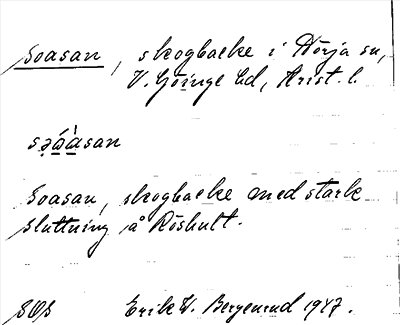 Soasan, skogbacke i Hörja sn,
V. Göinge hd, Krist. l.
sə̣áàsan
Soasan, skogbacke med stark
sluttning å Röshult.
SOS Erik W. Bergenrud 1947.